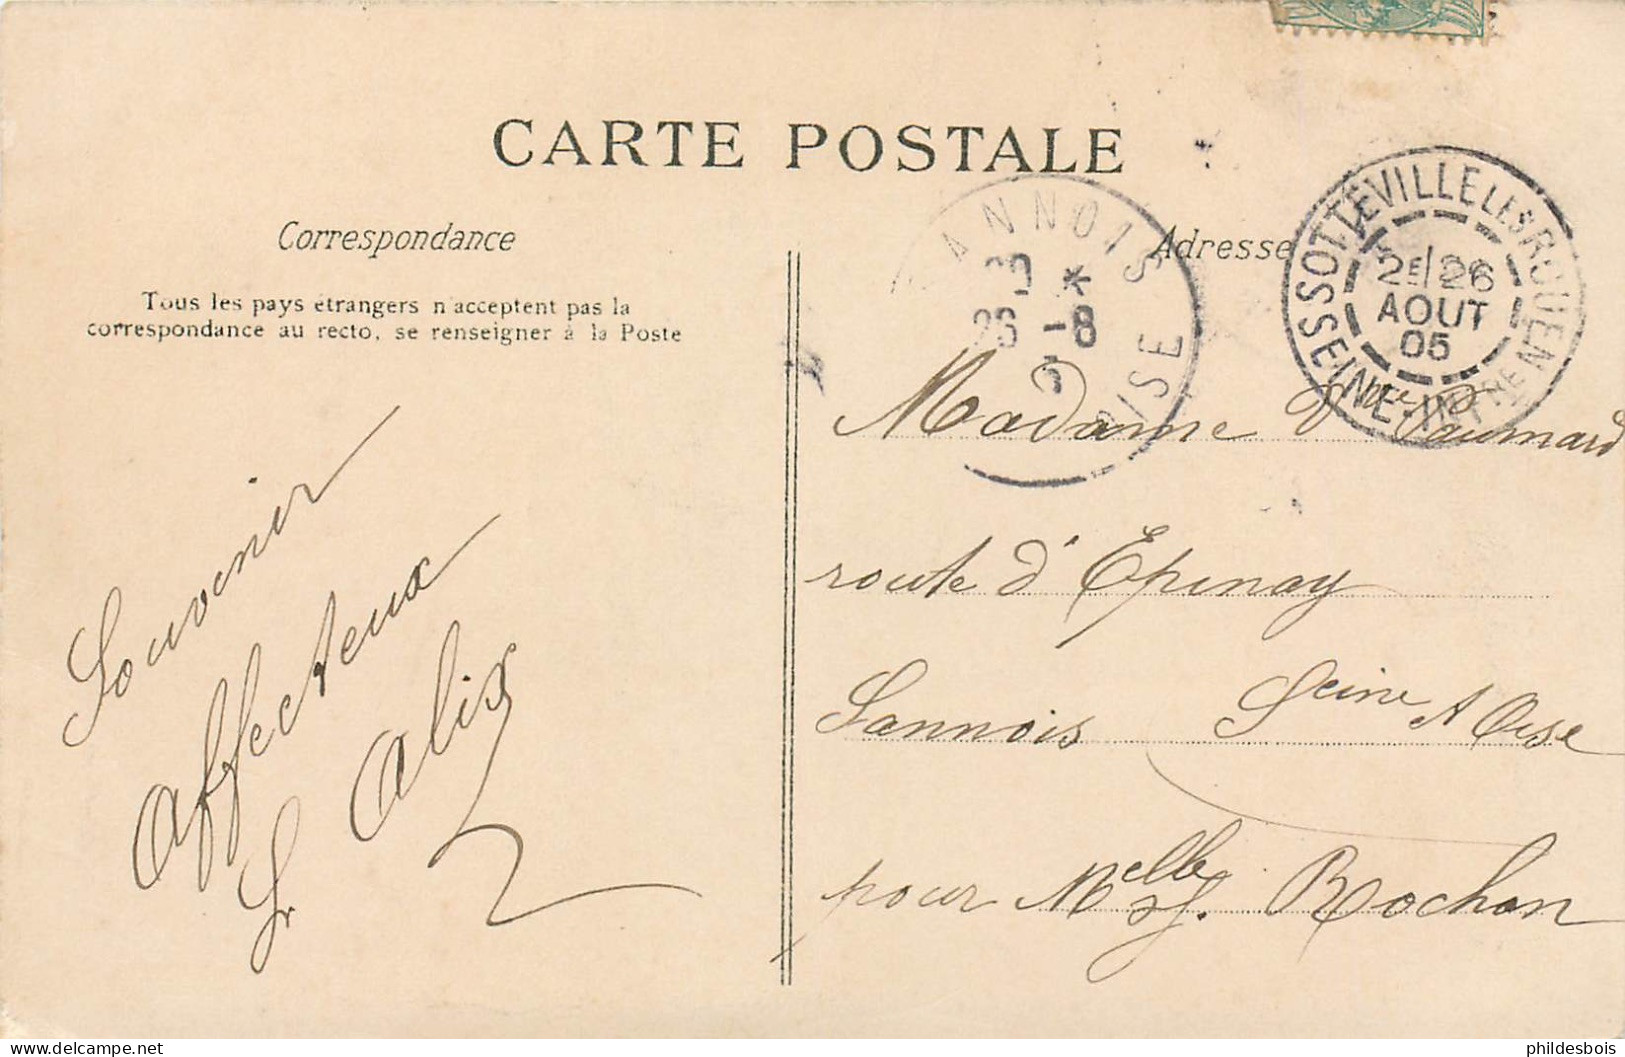 CARTE POSTALE
Correspondance
Tous les pays étrangers n'acceptent pas la
correspondance au recto, se renseigner à la Poste
Souvenir
Affecteux
Alix
Adresse
SOTTEVILLE LES ROUEN
2E/26
AOUT
05
SEINE-INFRE
SANNOIS
* 
26 -8
OISE
Madame Vve Paumard
route d'Epinay
Sannois Seine & Oise
pour Melle J. Rochon
phildesbois